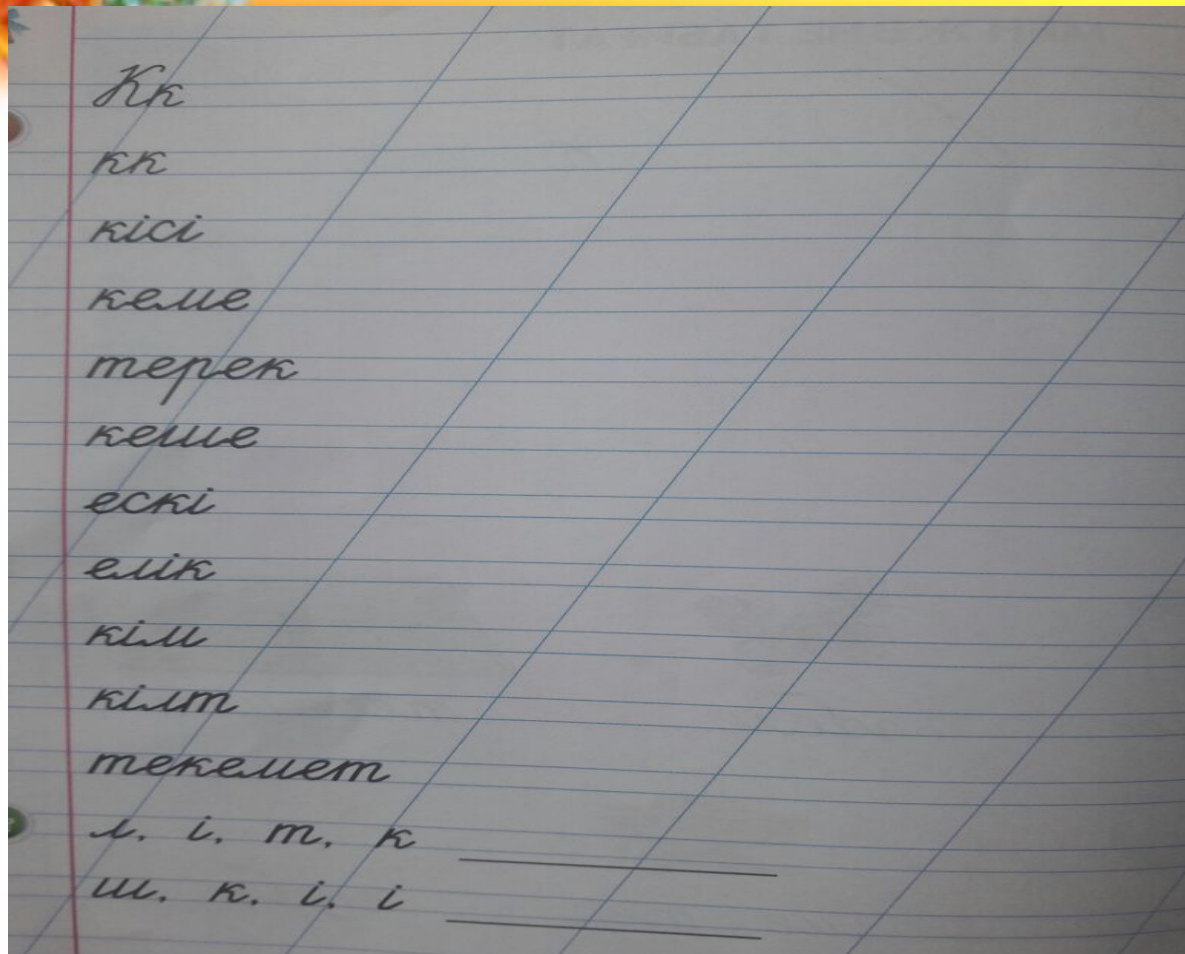 Кк
кк
кісі
кеме
терек
кеше
ескі
елік
кім
кілт
текемет
л. і. т. к
ш. к. і. і